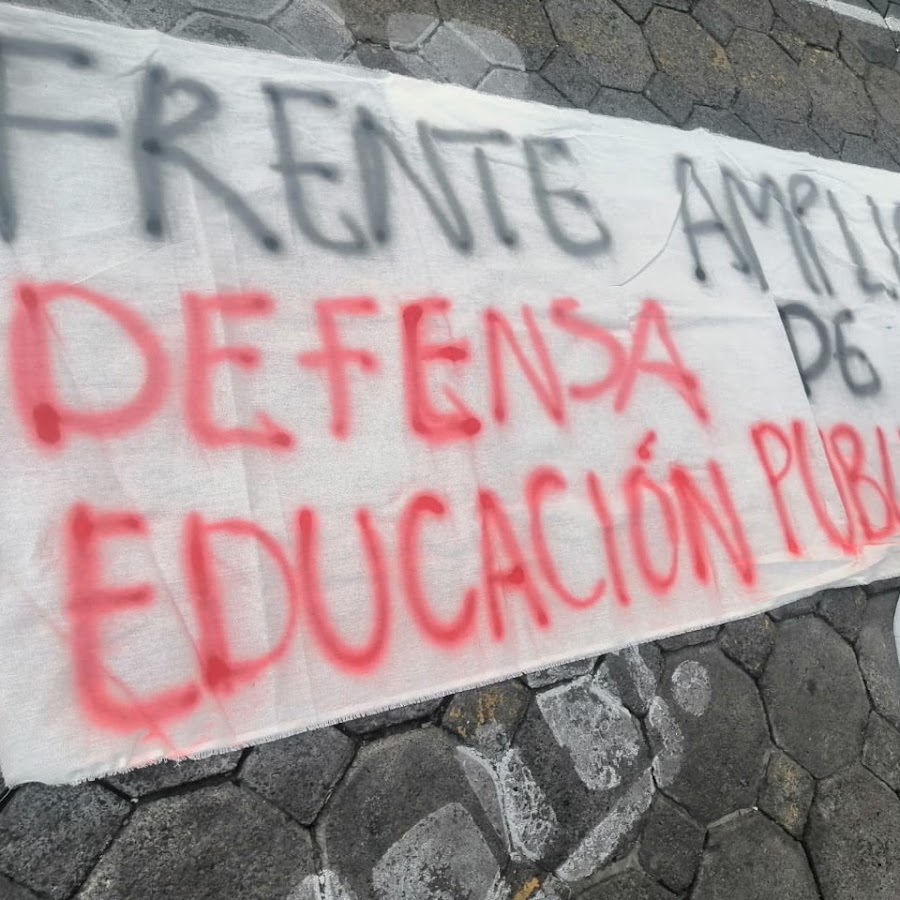 FRENTE AMPLIO
DE
DEFENSA
EDUCACIÓN PUBLI